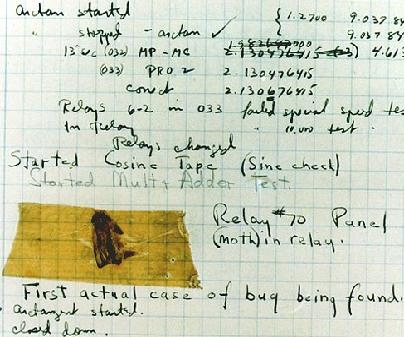 arctan started { 1.2700 9.037 84
" stopped - arctan ✓ 9.037 84
13"uc (032) MP - MC 2.130476415 4.615
(033) PRO 2 2.130476415
conv't 2.130676415
Relays 6-2 in 033 failed special speed te
In Relay " 10,000 test
Relays changed
Started Cosine Tape (Sine check)
Started Mult + Adder Test
Relay #70 Panel
(moth) in relay.
First actual case of bug being found.
arctangent started.
closed down.